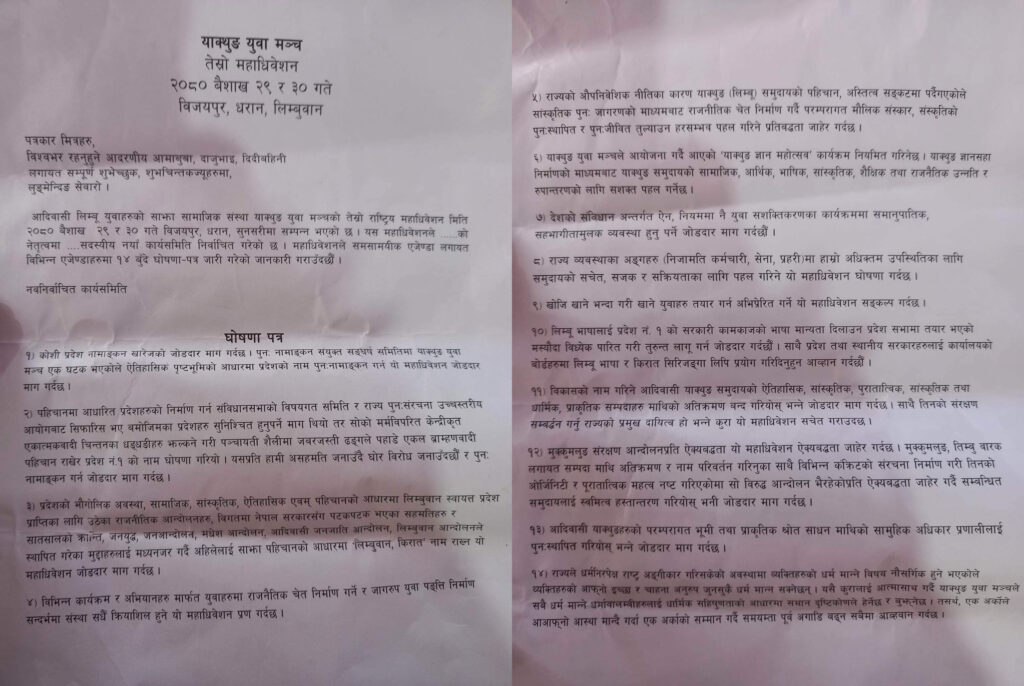 याक्थुङ युवा मञ्च
तेस्रो महाधिवेशन
२०८० बैशाख २९ र ३० गते
विजयपुर, धरान, लिम्बुवान
पत्रकार मित्रहरु,
विश्वभर रहनुहुने आदरणीय आमागुबा, दाजुभाइ, दिदीवहिनी
लगायत सम्पूर्ण शुभेच्छुक, शुभचिन्तकज्यूहरुमा,
लुङ्मेन्दिङ सेवारो ।
आदिवासी लिम्बू युवाहरुको साभ्का सामाजिक संस्था याक्थुङ युवा मञ्चको तेस्रो राष्ट्रिय महाधिवेशन मिति
२०८० बैशाख २९ र ३० गते विजयपुर, धरान, सुनसरीमा सम्पन्न भएको छ । यस महाधिवेशनले ......को
नेतृत्वमा ....सदस्यीय नयाँ कार्यसमिति निर्वाचित गरेको छ । महाधिवेशनले समसामयीक एजेण्डा लगायत
विभिन्न एजेण्डाहरुमा १४ बुँदे घोषणा-पत्र जारी गरेको जानकारी गराउँदछौं ।
नवनिर्वाचित कार्यसमिति
घोषणा पत्र
१) कोशी प्रदेश नामाङ्कन खारेजको जोडदार माग गर्दछ । पुन: नामाङ्कन संयुक्त सङघर्ष समितिमा याक्थुङ युवा
मञ्च एक घटक भएकोले ऐतिहासिक पृष्टभूमिको आधारमा प्रदेशको नाम पुन:नामाङ्कन गर्न यो महाधिवेशन जोडदार
माग गर्दछ ।
२) पहिचानमा आधारित प्रदेशहरुको निर्माण गर्न संविधानसभाको विषयगत समिति र राज्य पुन:संरचना उच्चस्तरीय
आयोगबाट सिफारिस भए बमोजिमका प्रदेशहरु सुनिश्चित हुनुपर्ने माग थियो तर सोको मर्मविपरित केन्द्रीकृत
एकात्मकवादी चिन्तनका धङ्धङी झल्कने गरी पञ्चायती शैलीमा जबरजस्ती ढङ्गले पहाडे एकल ब्राम्हणवादी
पहिचान राखेर प्रदेश नं.१ को नाम घोषणा गरियो । यसप्रति हामी असहमति जनाउँदै घोर विरोध जनाउँदछौं र पुन:
नामाङ्कन गर्न जोडदार माग गर्दछ ।
३) प्रदेशको भौगोलिक अवस्था, सामाजिक, सांस्कृतिक, ऐतिहासिक एवम् पहिचानको आधारमा लिम्बुवान स्वायत्त प्रदेश
प्राप्तिका लागि उठेका राजनीतिक आन्दोलनहरु, विगतमा नेपाल सरकारसंग पटकपटक भएका सहमतिहरु र
सातसालको क्रान्ति, जनयुद्ध, जनआन्दोलन, मधेश आन्दोलन, आदिवासी जनजाति आन्दोलन, लिम्बुवान आन्दोलनले
स्थापित गरेका मुद्दाहरुलाई मध्यनजर गर्दै अहिलेलाई साभ्का पहिचानको आधारमा 'लिम्बुवान, किरात' नाम राख्न यो
महाधिवेशन जोडदार माग गर्दछ ।
४) विभिन्न कार्यक्रम र अभियानहरु मार्फत युवाहरुमा राजनितिक चेत निर्माण गर्ने र जागरुप युवा पङ्त्ति निर्माण
सन्दर्भमा संस्था सधैं क्रियाशिल हुने यो महाधिवेशन प्रण गर्दछ ।
५) राज्यको औपनिवेशिक नीतिका कारण याक्थुङ (लिम्बू) समुदायको पहिचान, अस्तित्व सङ्कटमा पर्दैगएकोले
सांस्कृतिक पुन: जागरणको माध्यमबाट राजनीतिक चेत निर्माण गर्दै परम्परागत मौलिक संस्कार, संस्कृतिको
पुन:स्थापित र पुन:जीवित तुल्याउन हरसम्भव पहल गरिने प्रतिवद्धता जाहेर गर्दछ ।
६) याक्थुङ युवा मञ्चले आयोजना गर्दै आएको 'याक्थुङ ज्ञान महोत्सव' कार्यक्रम नियमित गरिनेछ । याक्थुङ ज्ञानसहा
निर्माणको माध्यमबाट याक्थुङ समुदायको सामाजिक, आर्थिक, भाषिक, सांस्कृतिक, शैक्षिक तथा राजनैतिक उन्नति र
रुपान्तरणको लागि सशक्त पहल गर्नेछ ।
७) देशको संविधान अन्तर्गत ऐन, नियममा नै युवा सशक्तिकरणका कार्यक्रममा समानुपातिक,
सहभागीतामुलक व्यवस्था हुनु पर्ने जोडदार माग गर्दछौं ।
८) राज्य व्यवस्थाका अङ्गहरु (निजामति कर्मचारी, सेना, प्रहरी)मा हाम्रो अधिक्तम उपस्थितिका लागि
समुदायको सचेत, सजक र सक्रियताका लागि पहल गरिने यो महाधिवेशन घोषणा गर्दछ ।
९) खोजि खाने भन्दा गरी खाने युवाहरु तयार गर्न अभिप्रेरित गर्ने यो महाधिवेशन सङ्कल्प गर्दछ ।
१०) लिम्बू भाषालाई प्रदेश नं. १ को सरकारी कामकाजको भाषा मान्यता दिलाउन प्रदेश सभामा तयार भएको
मस्यौदा विध्येक पारित गरी तुरुन्त लागू गर्न जोडदार गर्दछौं । साथै प्रदेश तथा स्थानीय सरकारहरुलाई कार्यालयको
बोर्डहरुमा लिम्बू भाषा र किरात सिरिजङ्गा लिपि प्रयोग गरिदिनुहुन आव्हान गर्दछौं ।
११) विकासको नाम गरिने आदिवासी याक्थुङ समुदायको ऐतिहासिक, सांस्कृतिक, पुरातात्विक, सांस्कृतिक तथा
धार्मिक, प्राकृतिक सम्पदाहरु माथिको अतिक्रमण बन्द गरियोस् भन्ने जोडदार माग गर्दछ । साथै तिनको संरक्षण
सम्बर्द्धन गर्नु राज्यको प्रमुख दायित्व हो भन्ने कुरा यो महाधिवेशन सचेत गराउदछ ।
१२) मुक्कुमलुङ संरक्षण आन्दोलनप्रति ऐक्यबद्धता यो महाधिवेशन ऐक्यबद्धता जाहेर गर्दछ । मुक्कुमलुङ, तिम्बु बारक
लगायत सम्पदा माथि अतिक्रमण र नाम परिवर्तन गरिनुका साथै विभिन्न कंक्रिटको संरचना निर्माण गरी तिनको
ओर्जिनिटी र पुरातात्विक महत्व नष्ट गरिएकोमा सो विरुद्ध आन्दोलन भैरहेकोप्रति ऐक्यबद्धता जाहेर गर्दै सम्बन्धित
समुदायलाई स्वमित्व हस्तान्तरण गरियोस् भनी जोडदार माग गर्दछ ।
१३) आदिवासी याक्थुङहरुको परम्परागत भूमी तथा प्राकृतिक श्रोत साधन माथिको सामुहिक अधिकार प्रणालीलाई
पुन:स्थापित गरियोस् भन्ने जोडदार माग गर्दछ ।
१४) राज्यले धर्मनिरपेक्ष राष्ट्र अङ्गीकार गरिसकेको अवस्थामा व्यक्तिहरुको धर्म मान्ने विषय नौसर्गिक हुने भएकोले
व्यक्तिहरुको आफ्नो इच्छा र चाहना अनुरुप जुनसुकै धर्म मान्न सक्नेछन् । यसै कुरालाई आत्मासाथ गर्दै याक्थुङ युवा मञ्चले
सबै धर्म मान्ने धर्मावलम्बीहरुलाई धार्मिक सहिषुणताको आधारमा समान दृष्टिकोणले हेर्नेछ र बुझ्नेछ । तसर्थ, एक अर्काले
आआफ्नो आस्था मान्दै गर्दा एक अर्काको सम्मान गर्दै समयमता पूर्व अगाडि बढ्न सबैमा आव्हवान गर्दछ ।